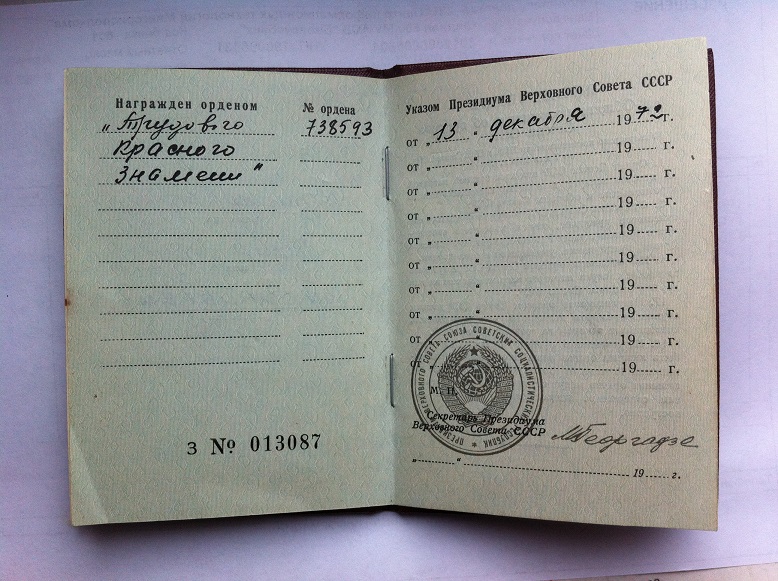 Награжден орденом
№ ордена
„Трудового
738593
Красного
Знамени"
З № 013087
Указом Президиума Верховного Совета СССР
от „ 13 “ декабря 1972 г.
от „ “ 19 г.
от „ “ 19 г.
от „ “ 19 г.
от „ “ 19 г.
от „ “ 19 г.
от „ “ 19 г.
от „ “ 19 г.
от „ “ 19 г.
от „ “ 19 г.
М. П.
Секретарь Президиума
Верховного Совета СССР
МГеоргадзе
„ “ 19 г.